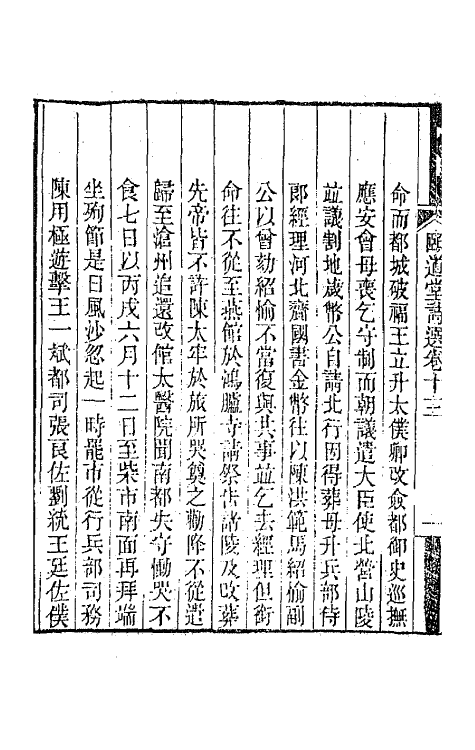 命而都城破福王立升太僕卿改僉都御史巡撫
應安會母喪乞守制而朝議遣大臣使北營山陵
並議割地歲幣公自請北行因得葬母升兵部侍
郎經理河北齎國書金幣往以陳洪範馬紹愉副
公以曾劾紹愉不當復與共事並乞去經理但銜
命往不從至燕館於鴻臚寺請祭告諸陵及改葬
先帝皆不許陳太牢於旅所哭奠之勸降不從遣
歸至滄州追還改館太醫院聞南都失守慟哭不
食七日以丙戌六月十二日至柴市南面再拜端
坐殉節是日風沙忽起一時罷市從行兵部司務
陳用極遊擊王一斌都司張良佐劉統王廷佐僕
頤道堂詩選卷十三
一